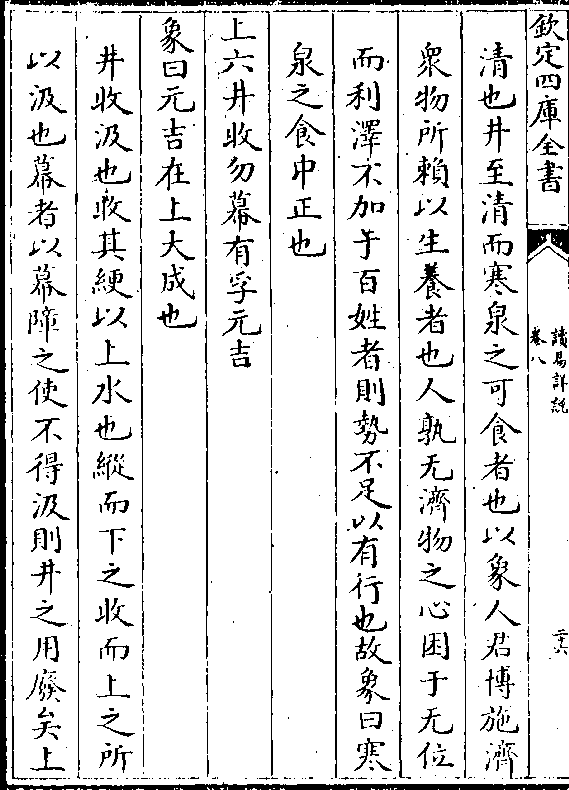 欽定四庫全書
讀易詳說
卷八
二十六
清也井至清而寒泉之可食者也以象人君博施濟
衆物所賴以生養者也人孰无濟物之心困于无位
而利澤不加于百姓者則勢不足以有行也故象曰寒
泉之食中正也
上六井收勿幕有孚元吉
象曰元吉在上大成也
井收汲也收其綆以上水也縱而下之收而上之所
以汲也幕者以幕障之使不得汲則井之用廢矣上